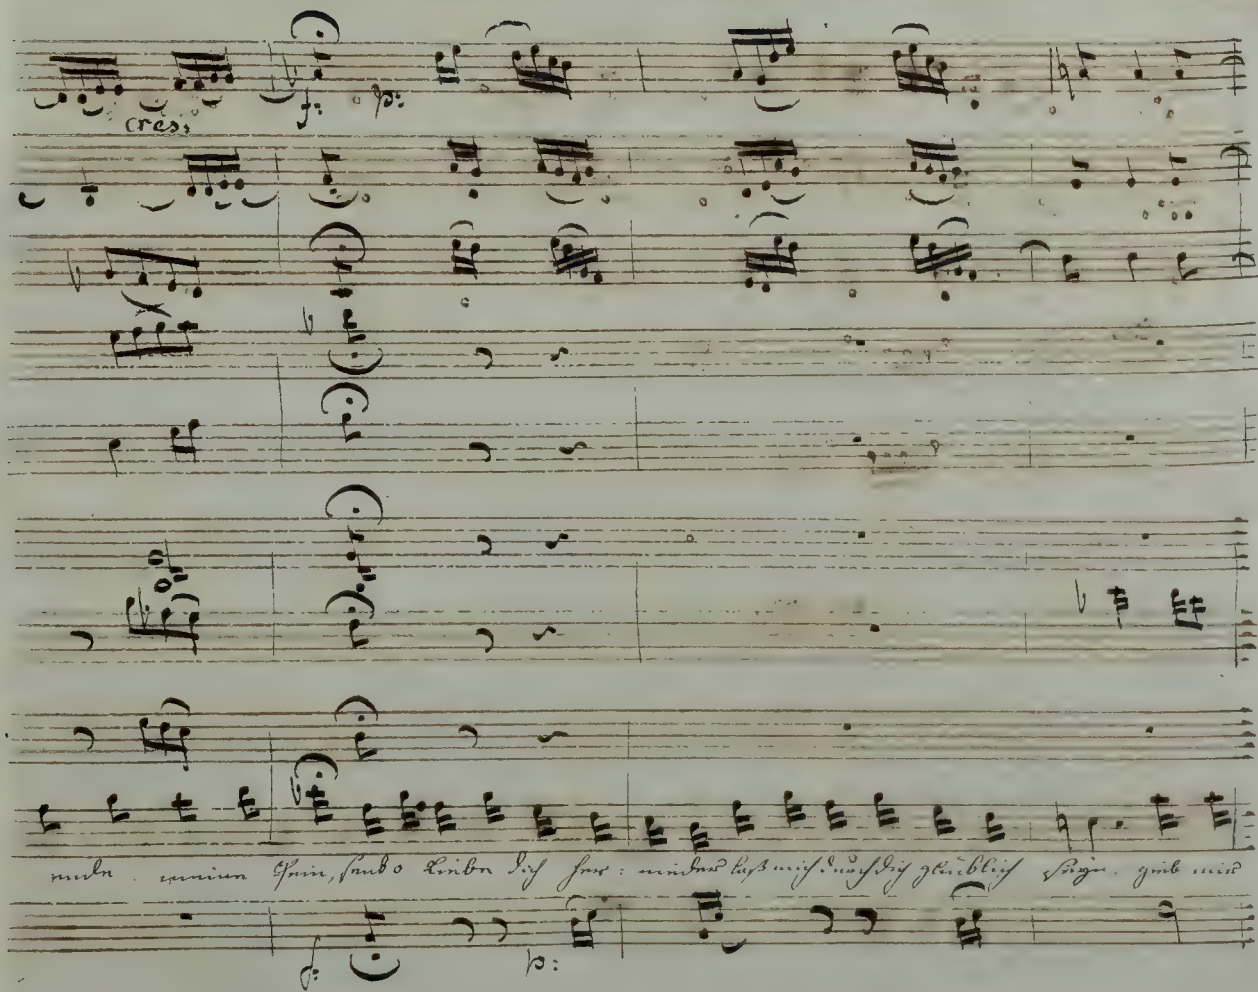 cres:
f: p:
ende meine Pein, senk o Liebe dich her: nieder laß mich durch dich glücklich seyn. gieb mir
f: p: